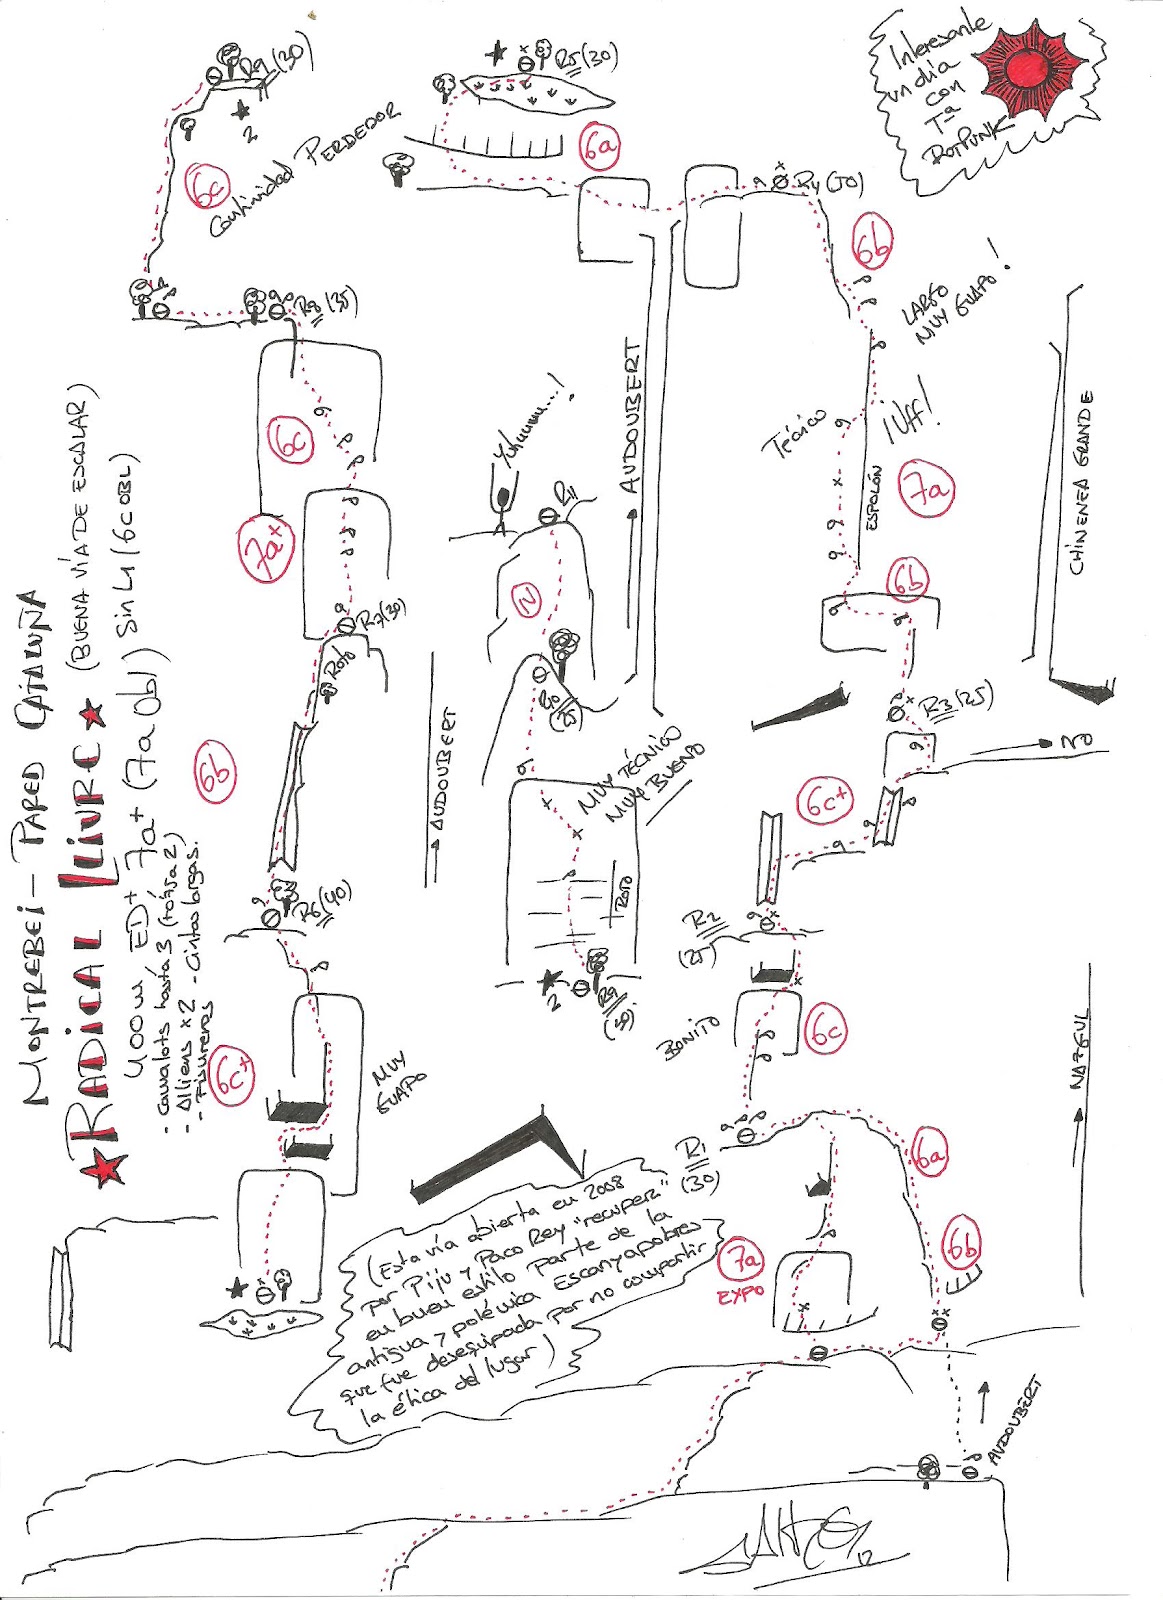 MONTREBEI - PARED CATALUÑA
RADICAL LLIURE (BUENA VÍA DE ESCALAR)
400m ED+ 7a+ (7a Obl) Sin L1 (6c OBL)
- Camalots hasta 3
- Alliens x2 - Cintas largas.
- Fisureros
Interesante
un día
con
Tª
ROTPUNK
R9 (30)
2
6c
Continuidad PERDEDOR
R8 (35)
6c
7a+
R7 (30)
Roto
6b
R6 (40)
6c+
MUY
GUAPO
R5 (30)
6a
R4 (50)
6b
LARGO
MUY GUAPO!
¡Uff!
Técnico
7a
ESPOLÓN
6b
R3 (25)
NO
6c+
R2
(25)
BONITO
6c
R1
(30)
6a
6b
7a
EXPO
AUDOUBERT
AUDOUBERT
CHIMENEA GRANDE
NAZGUL
AUDOUBERT
Yuhuuuu...!
R11
IV
R10
(25)
MUY TÉCNICO
MUY BUENO
ROTO
R9
(30)
2
(Esta vía abierta en 2008
por Piju y Paco Rey "recupera"
en buen estilo parte de la
antigua y polémica Escanyapobres
que fue desequipada por no compartir
la ética del lugar)
12